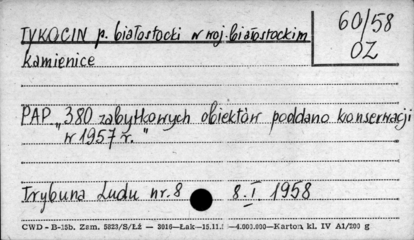 TYKOCIN p. białostocki w woj. białostockim
60/58
OZ
kamienice
PAP „380 zabytkowych obiektów poddano konserwacji
w 1957 r."
Trybuna Ludu nr. 8 8. I. 1958
CWD - B-15b. Zam. 5823/S/Łż — 3016—Łak—15.11. —4.000.000—Karton kl. IV A1/200 g